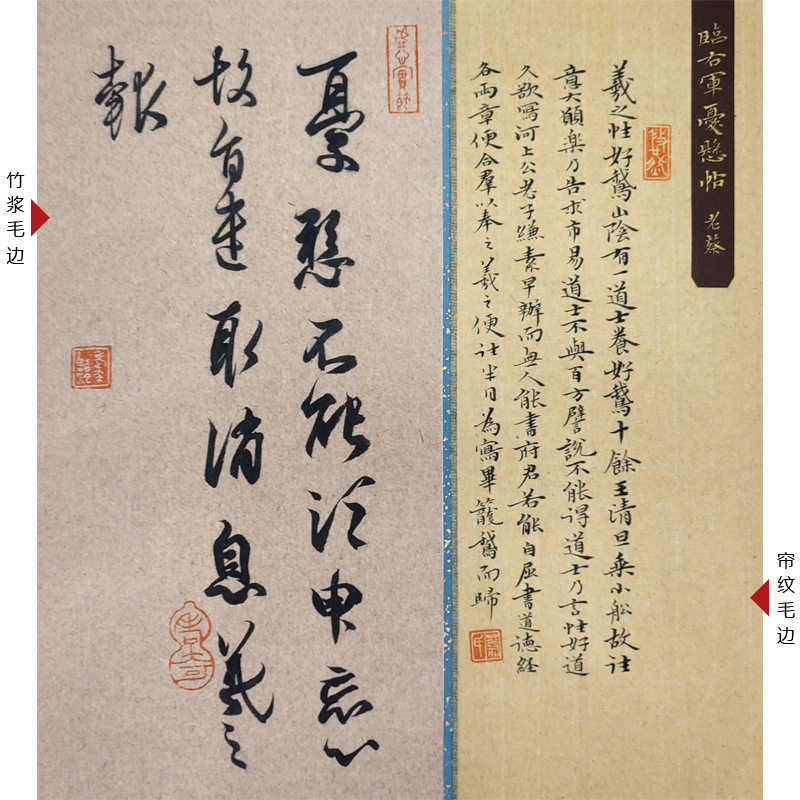 臨右軍憂懸帖 老蔡
羲之性好鵝山陰有一道士養好鵝十餘王清旦乗小船故往
意大願樂乃告求市易道士不與百方譬說不能得道士乃言性好道
久欲寫河上公老子縑素早辦而無人能書府君若能自屈書道德經
各兩章便合羣以奉之羲之便住半日為寫畢籠鵝而歸
憂懸不能須臾忘心
故旨遣取消息羲之
報
竹浆毛边
帘纹毛边